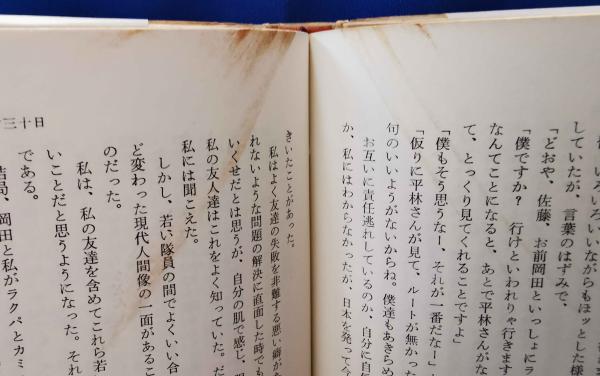 していたが、言葉のはずみで、
「どおや、佐藤、お前岡田といっしょにラ
「僕ですか? 行けといわれりゃ行きます
なんてことになると、あとで平林さんがな
て、とっくり見てくれることですよ」
「僕もそう思うなー、それが一番だなー」
「仮りに平林さんが見て、ルートが無かった
句のいいようがないからね。僕達もあきらめ
お互いに責任逃れしているのか、自分に自信
か、私にはわからなかったが、日本を発って今
きいたことがあった。
私はよく友達の失敗を非難する悪い癖があ
れないような問題の解決に直面した時でも
いくせだとは思うが、自分の肌で感じ、
私の友人達はこれをよく知っていた。だ
私には聞こえた。
しかし、若い隊員の間でよくいい合
ど変わった現代人間像の一面があるこ
のだった。
私は、私の友達を含めてこれら若
いことだと思うようになった。それ
である。
結局、岡田と私がラクパとカミ
三十日